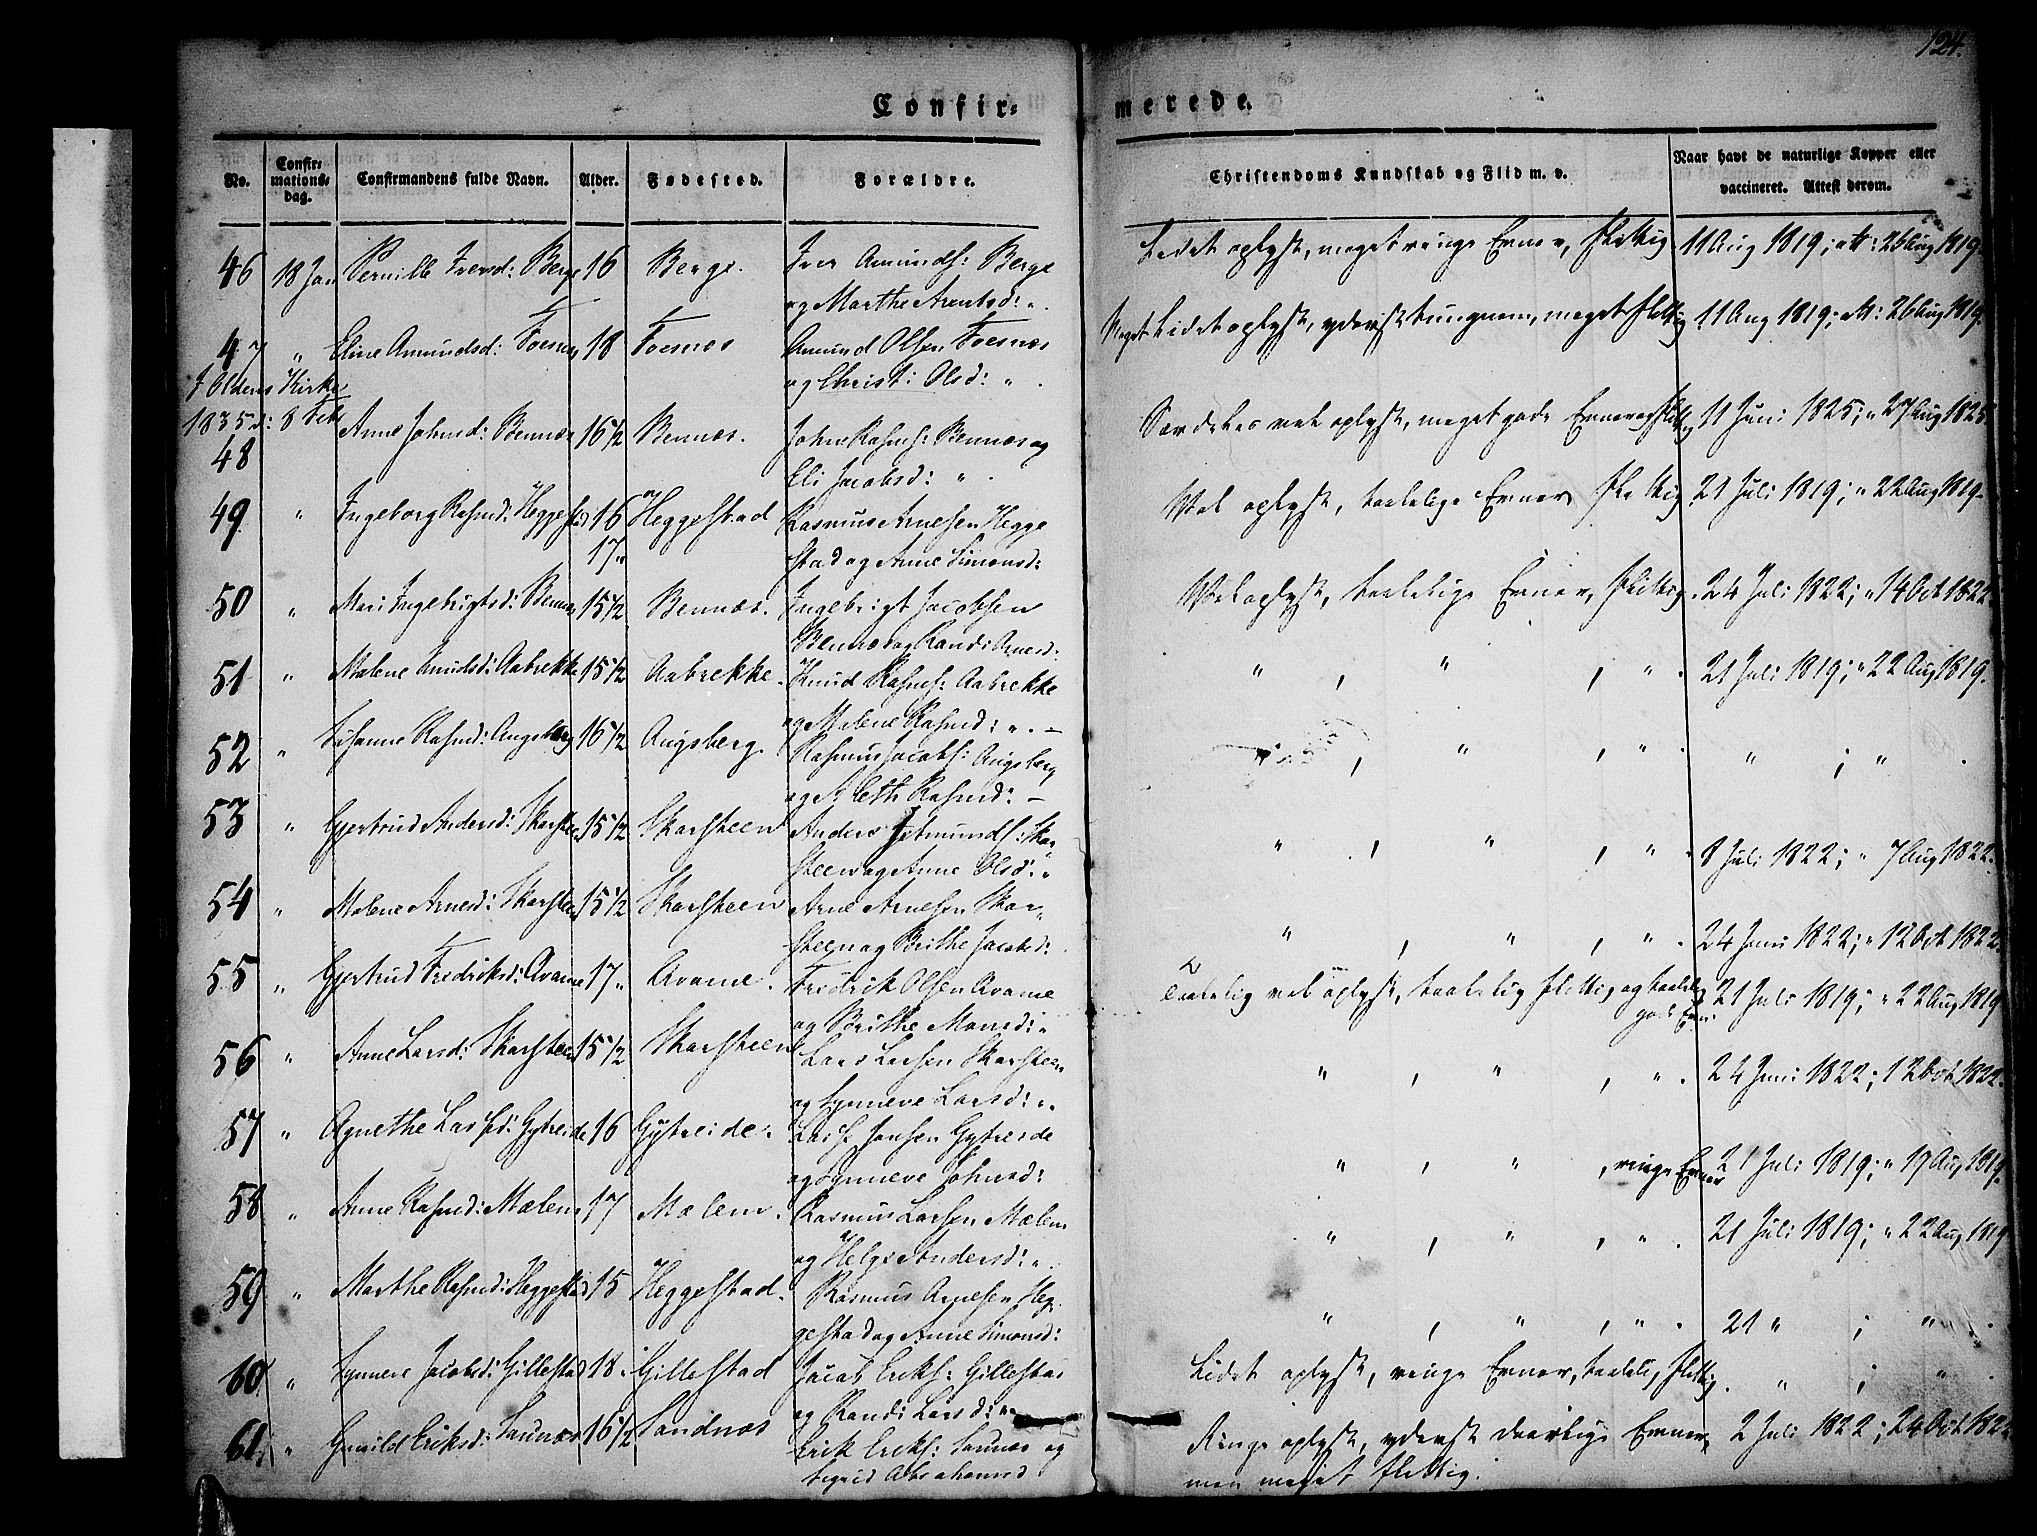 124.
Confir-
merede.
No.
Confir-
mations-
dag.
Confirmandens fulde Navn.
Alder.
Fødested.
Forældre.
Christendoms Kundskab og Flid m. v.
Naar havt de naturlige Kopper eller
vaccineret. Attest derom.
46 18 Jan Pernille Iversd: Berge 16 Berge. Iver Amunds: Berge
og Marthe Arentsd: „.
Lidet oplyst, meget ringe Evner, flittig. 11 Aug 1819; att: 26 Aug 1819.
47 „ Eline Amundsd: Foesnæs 18 Foesnæs Amund Olsen Foesnæs
og Christ: Olsd: „.
Meget Lidet oplyst, yderst tungnem, meget flittig 11 Aug 1819; att: 26 Aug 1819.
I Oldens Kirke
1835 d: 8 Feb
48 Anne Johnsd: Bennæs 16 1/2 Bennæs. John Rasms: Bennæs og
Eli Jacobsd: „.
Særdeles vel oplyst, meget gode Evner og flittig 11 Juni 1825; „ 27 Aug 1825.
49 „ Ingeborg Rasmd: Heggestad 16 Heggestad Rasmus Arnesen Hegge
17„ stad og Anne Simonsd:
Vel oplyst, taalelige Evner flittig 21 Juli 1819; „ 22 Aug 1819.
50 „ Mari Ingebrigtsd: Bennæs 15 1/2 Bennæs. Ingebrigt Jacobsen
Bennæs og Randi Arnesd:
Vel oplyst, taalelige Evner, flittig. 24 Juli 1822; „ 14 Oct 1822.
51 „ Malene Knudsd: Aabrekke 15 1/2 Aabrekke. Knud Rasms: Aabrekke
og Malene Rasmd: „. –
„ , „ , „ . 21 Juli 1819; „ 22 Aug 1819.
52 „ Susanne Rasmd: Augsberg 16 1/2 Augsberg. Rasmus Jacobs: Augsberg
og Rasmd: –
„ , „ , „ . „ ; „ .
53 „ Gjertrud Andersd: Skarsteen 15 1/2 Skarsteen Anders Skar
steen og Anne Olsd: „
„ , „ , „ . 8 Juli 1822; „ 7 Aug 1822.
54 „ Malene Arnesd: Skarsteen 15 1/2 Skarsteen Arne Arnesen Skar-
steen og Brithe Jacobsd:
„ , „ , „ . 24 Juni 1822; „ 12 Oct 1822.
55 „ Gjertrud Fredriksd: Qvame 17„ Qvame. Fredrik Olsen Qvame
og Brithe Monsd: „
Taalelig vel oplyst, taalelig flittig og taalelig 21 Juli 1819; „ 22 Aug 1819
gode Evn:
56 „ Anne Larsd: Skarsteen 15 1/2 Skarsteen Lars Larsen Skarsteen
og Synneve Larsd: „.
„ , „ , „ . 24 Juni 1822; 12 Oct 1822.
57 „ Agnethe Lassesd: Gytreide 16 Gytreide. Lasse Jonsen Gytreide
og Synneve Johnsd:
„ , „ , ringe Evner 21 Juli 1819; „ 19 Aug 1819.
58 „ Anne Rasmd: Mælem 17 Mælem. Rasmus Larsen Mælem
og Helge Andersd: „.
„ , „ , „ . 21 Juli 1819; „ 22 Aug 1819
59 „ Marthe Rasmd: Heggestad 15 Heggestad. Rasmus Arnesen Heg-
gestad og Anne Simonsd:
„ , „ , „ . 21 „ ; „ .
60 „ Synneve Jacobsd: Gillestad 18. Gillestad Jacob Eriks: Gillestad
og Randi Larsd: „.
Lidet oplyst, ringe Evner, taalelig flittig. „ ; „ .
61. „ Gunild Eriksd: Saunæs 16 1/2 Sandnæs Erik Eriks: Saunæs og
Sigrid Abrahamsd
Ringe oplyst, yderst daarlige Evner, 2 Juli 1822; 24 Oct 1822
men meget flittig.